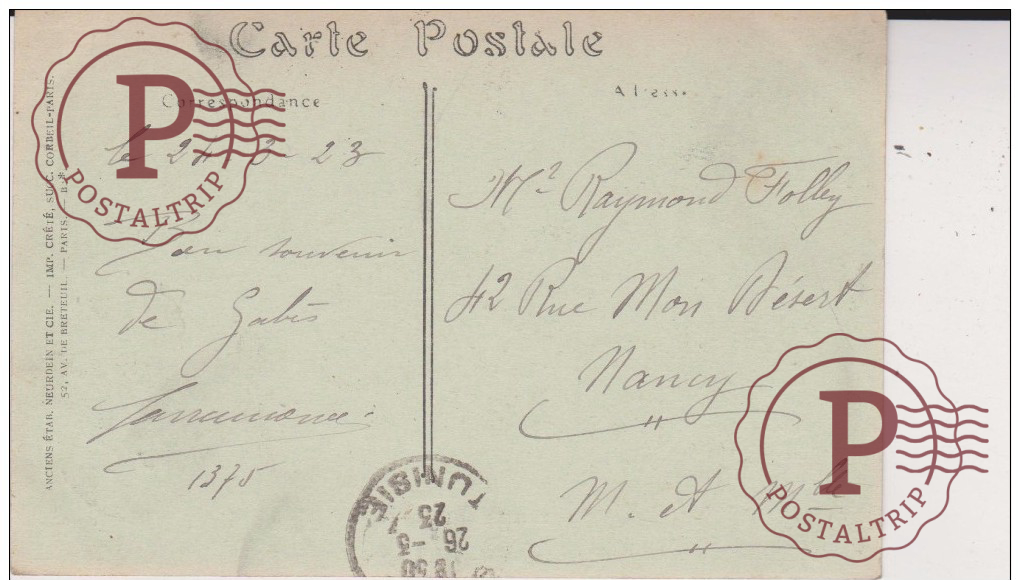 Carte Postale
Correspondance
le 24 3 23
Bon souvenir
de Gabès
1375
Mr Raymond Folley
42 Rue Mon Désert
Nancy
"
M. et Mlle
ANCIENS ÉTAB. NEURDEIN ET CIE. — IMP. CRÉTÉ, SUCC. CORBEIL-PARIS.
52, AV. DE BRETEUIL. — PARIS. —
TUNISIE
26 -3
23
P
POSTALTRIP
P
POSTALTRIP